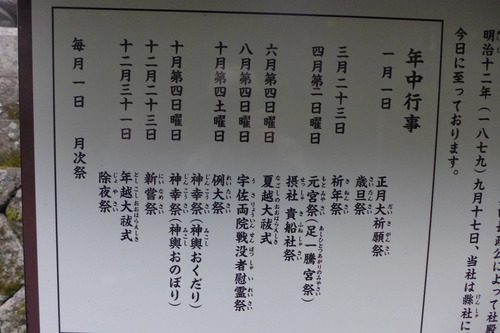 長政公によって社
明治十二年（一八七九）九月十七日、当社は縣社に
今日に至っております。
年中行事
一月一日　正月大祈願祭
歳旦祭
三月二十三日　祈年祭
四月第二日曜日　元宮祭（足一騰宮祭）
摂社 貴船社祭
六月第四日曜日　夏越大祓式
八月第四日曜日　宇佐両院戦没者慰霊祭
十月第四土曜日　例大祭
神幸祭（神輿おくだり）
十月第四日曜日　神幸祭（神輿おのぼり）
十二月二十三日　新嘗祭
十二月三十一日　年越大祓式
除夜祭
毎月一日　月次祭